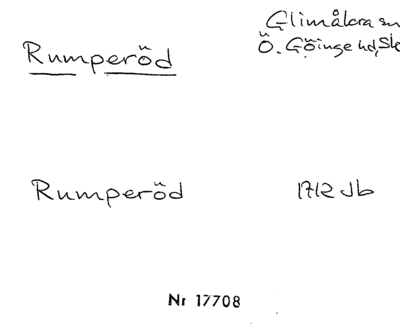 Rumperöd
Glimåkra sn
Ö. Göinge hd, Sk
Rumperöd
1712 Jb
Nr 17708